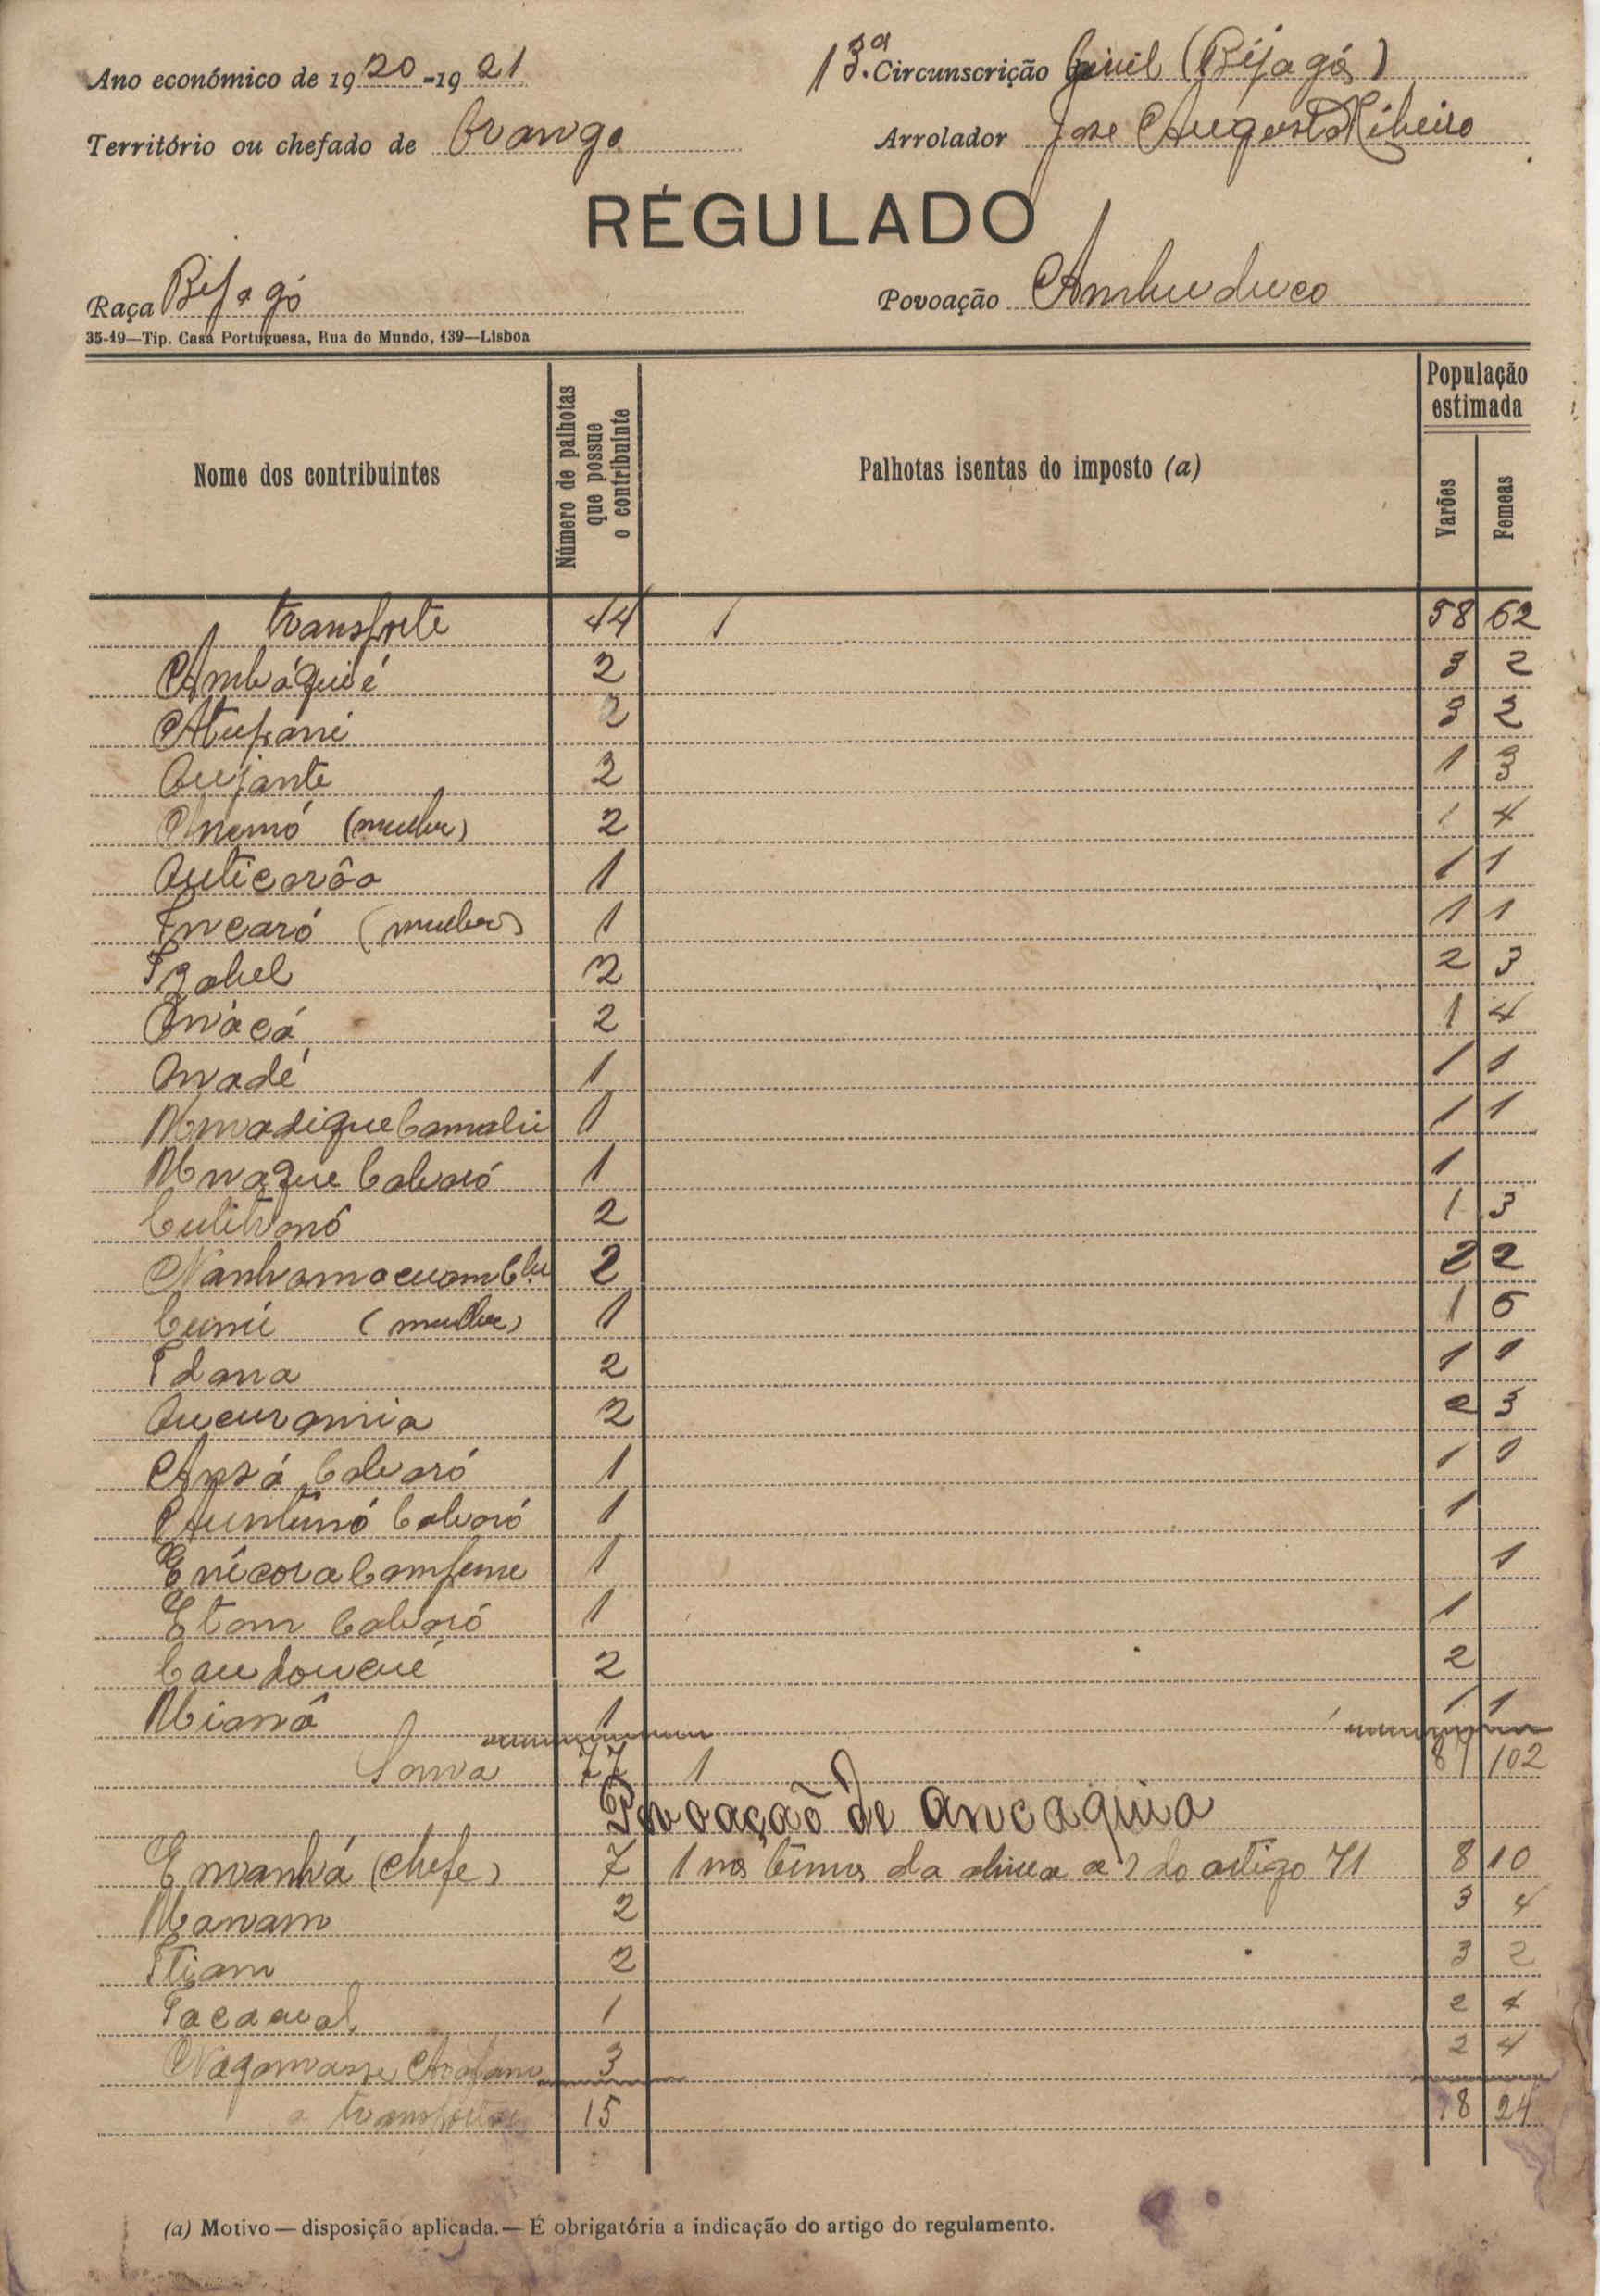 Ano económico de 1920-1921
13ª Circunscrição Civil (Bijagós)
Território ou chefado de Orango
Arrolador Jose Augusto Ribeiro
RÉGULADO
Raça Bijagó
Povoação Ambuduco
35-19—Tip. Casa Portuguesa, Rua do Mundo, 139—Lisboa
Nome dos contribuintes Número de palhotas que possue o contribuinte Palhotas isentas do imposto (a) População estimada Varões Femeas
transporte 44 1 58 62
Ambáquié 2 3 2
2 3 2
Oujante 2 1 3
Onemó (mulher) 2 1 4
1 1 1
Incaró (mulher) 1 1 1
Izabel 2 2 3
Onácá 2 1 4
Onadé 1 1 1
1 1 1
1 1
2 1 3
2 2 2
Cumi (mulher) 1 1 6
Idana 2 1 1
Oucurania 2 2 3
1 1 1
1 1
1 1
1 1
2 2
1 1 1
Soma 77 1 87 102
Povoação de Ancaquia
Enanhá (chefe) 7 1 nos termos da alinea a do artigo 71 8 10
2 3 4
2 3 2
1 2 4
3 2 4
a transportar 15 18 24
(a) Motivo — disposição aplicada. — É obrigatória a indicação do artigo do regulamento.